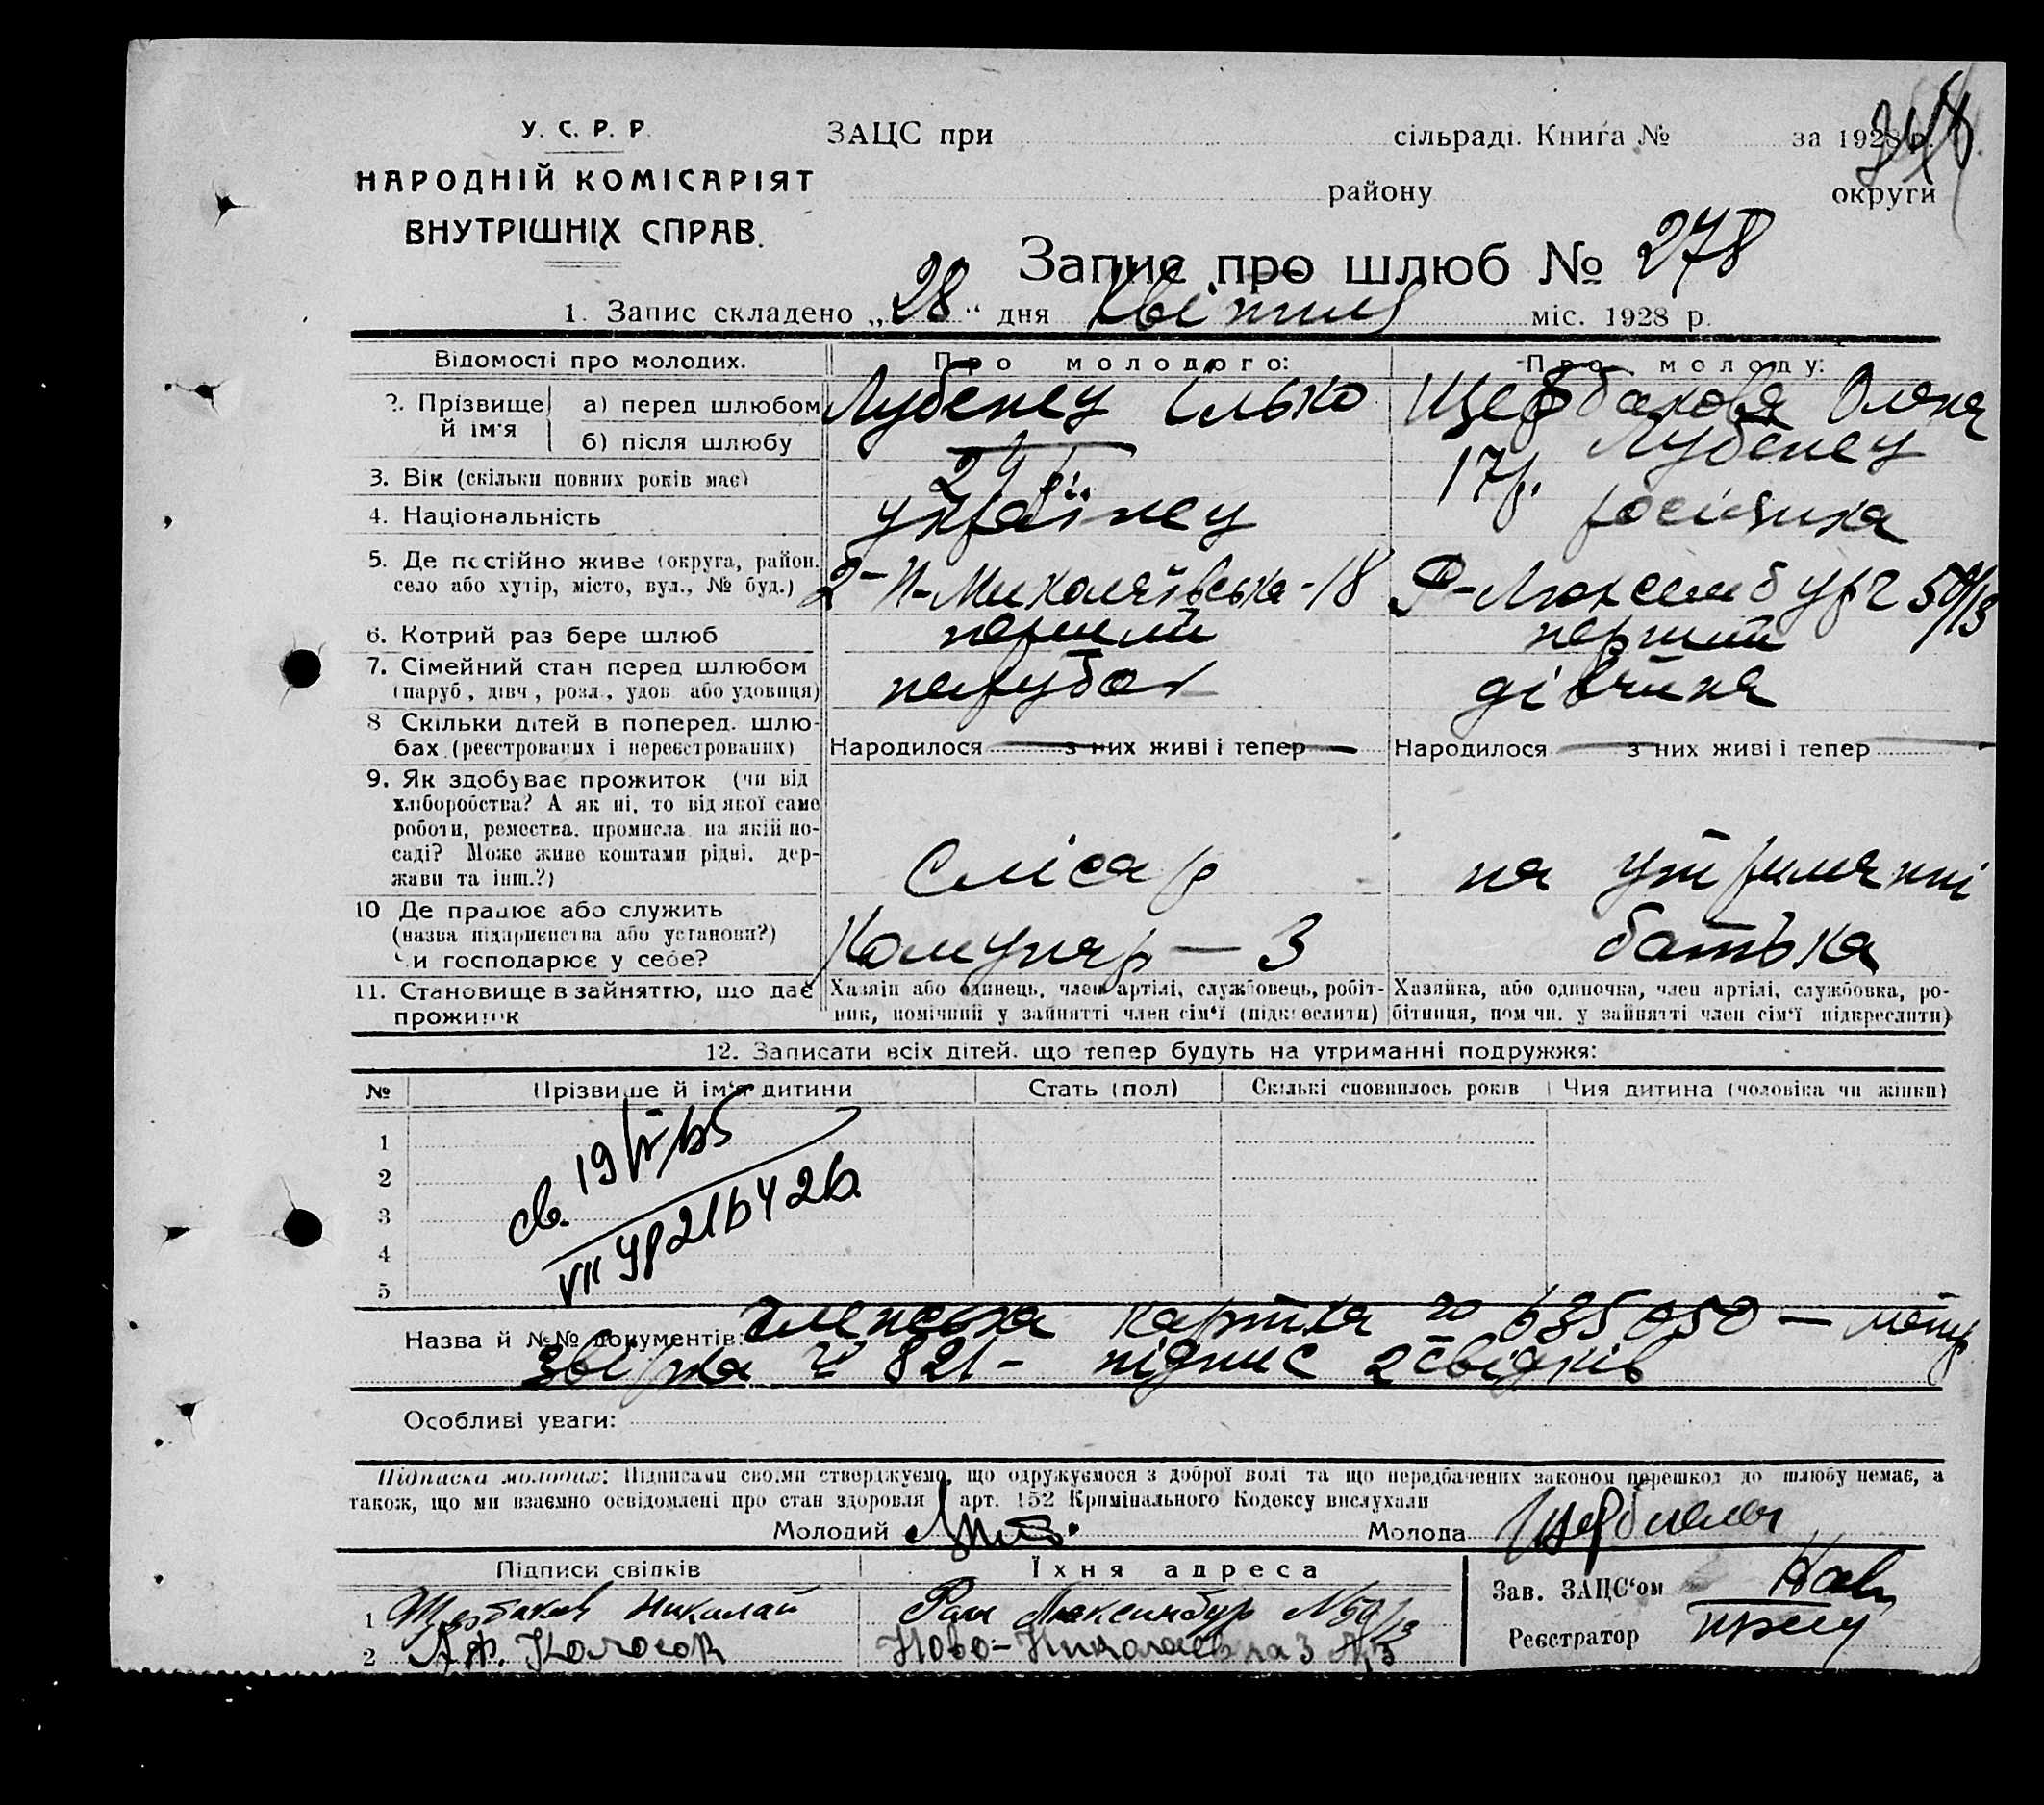 У. С. Р. Р.
НАРОДНІЙ КОМІСАРІЯТ
ВНУТРІШНІХ СПРАВ.
ЗАЦС при сільраді. Книга № за 1928 р.
району округи
Запис про шлюб № 278
1. Запис складено „28“ дня Квітня міс. 1928 р.
Відомості про молодих. Про молодого: Про молоду:
2. Прізвище й ім'я а) перед шлюбом Лубенец Ілько Щербакова Олена
б) після шлюбу — Лубенец
3. Вік (скільки повних років має) 17р.
4. Національність українец росіянка
5. Де постійно живе (округа, район, село або хутір, місто, вул., № буд.) 2-Н-Миколаївська-18 Р-Люксембург 59/13
6. Котрий раз бере шлюб перший перший
7. Сімейний стан перед шлюбом (паруб., дівч., розл., удов. або удовиця) парубок дівчина
8 Скільки дітей в поперед. шлюбах (реєстрованих і нереєстрованих) Народилося — з них живі і тепер — Народилося — з них живі і тепер —
9. Як здобуває прожиток (чи від
хліборобства? А як ні, то від якої саме
роботи, ремества, промисла на якій по-
саді? Може живе коштами рідні, дер-
жави та інш.?) Слісар на утриманні
10 Де працює або служить
(назва підприємства або установи?)
Чи господарює у себе? Комунар — 3 батька
11. Становище в зайняттю, що дає прожиток Хазяїн або одинець, член артілі, службовець, робітник, помічний у зайнятті член сім'ї (підкреслити) Хазяйка, або одиночка, член артілі, службовка, робітниця, помічн. у зайнятті член сім'ї підкреслити)
12. Записати всіх дітей, що тепер будуть на утриманні подружжя:
№ Прізвище й ім'я дитини Стать (пол) Скількі сповнилось років Чия дитина (чоловіка чи жінки)
1
2
3
4
5
св. 19/IV/65
VII УР 216426
Назва й №№ документів: членська картка № 685050 —
звірка № 821 — підпис 2 свідків
Особливі уваги:
Підписка молодих: Підписами своїми стверджуємо, що одружуємося з доброї волі та що передбачених законом перешкод до шлюбу немає, а
також, що ми взаємно освідомлені про стан здоровля і арт. 152 Кримінального Кодексу вислухали
Молодий Молода
Підписи свідків Їхня адреса
1 Щербаков Николай Роза Люксембур №59/13
2 Аф. Колосов Ново-Николаевка 3
Зав. ЗАЦС'ом
Реєстратор